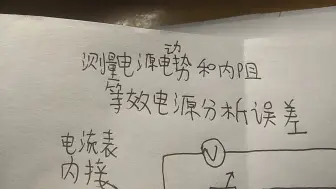 测量电源电动势和内阻
等效电源分析误差
电流表
内接
V